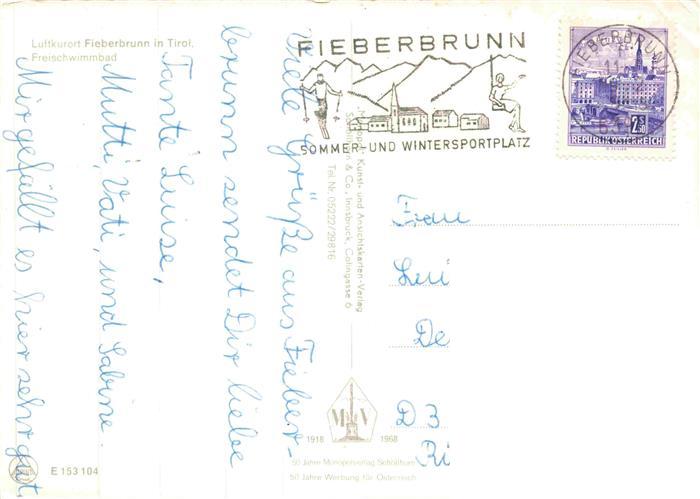 Luftkurort Fieberbrunn in Tirol,
Freischwimmbad
FIEBERBRUNN
SOMMER- UND WINTERSPORTPLATZ
FIEBERBRUNN
11
2.50
REPUBLIK ÖSTERREICH
Viele Grüße aus Fieber-
brunn sendet Dir liebe
Tante Luise,
Mutti, Vati, und Sabine.
Mir gefällt es hier sehr gut.
Kunst- und Ansichtskarten-Verlag
& Co., Innsbruck, Colingasse 6
Tel. Nr. 05222/29816
Frau
De
D 3
Ri
MV
1918 1968
50 Jahre Monopolverlag Schöllhorn
50 Jahre Werbung für Österreich
E 153 104